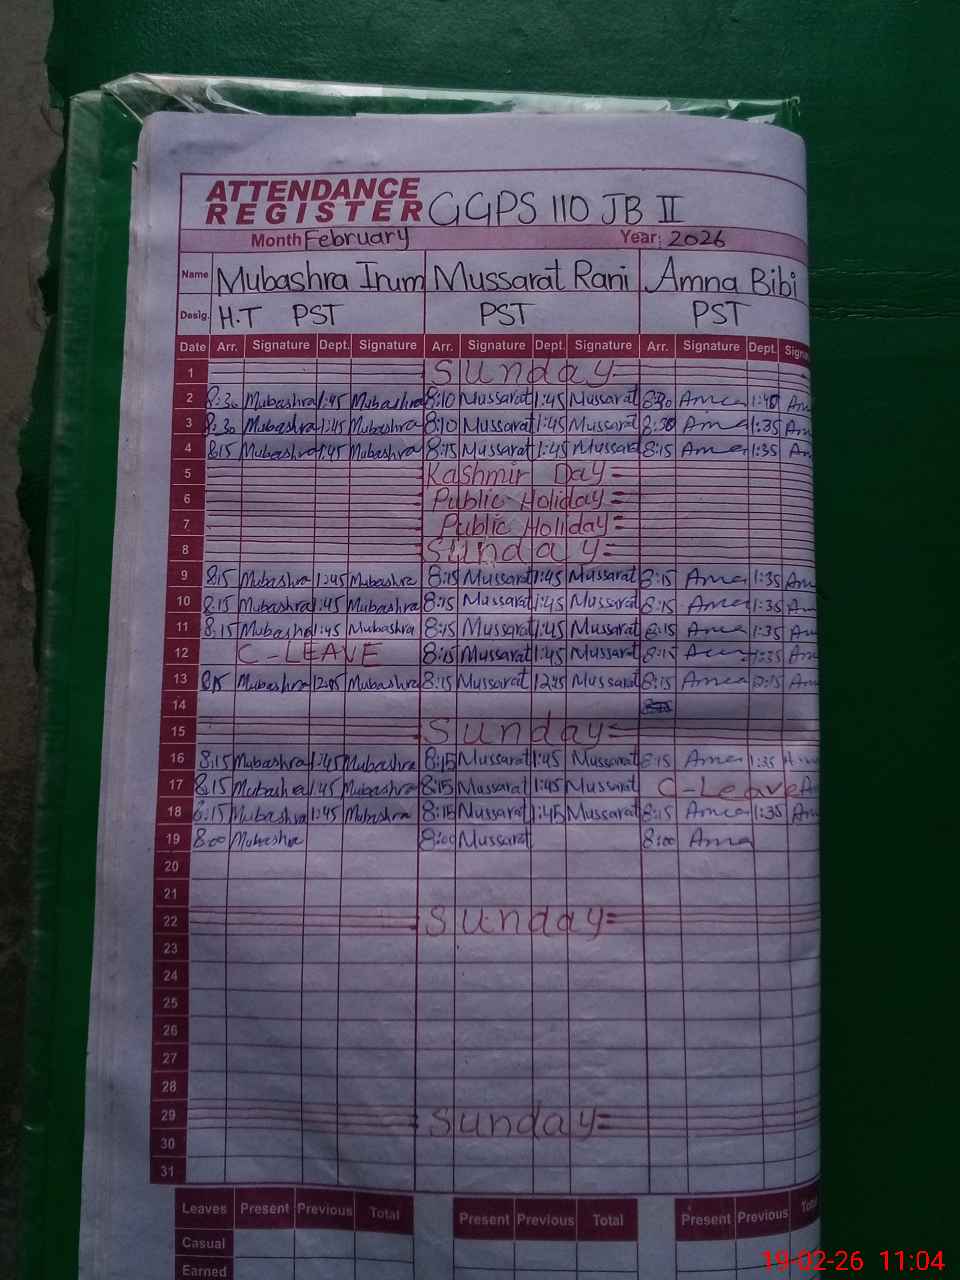 ATTENDANCE
REGISTER GGPS 110 JB II
Month February Year: 2026
Name Mubashra Irum Mussarat Rani Amna Bibi
Desig. H.T PST PST PST
Date Arr. Signature Dept. Signature Arr. Signature Dept. Signature Arr. Signature Dept.
1 Sunday
2 8:30 Mubashra 1:45 Mubashra 8:10 Mussarat 1:45 Mussarat 8:30 Amna
3 8:30 Mubashra 1:45 Mubashra 8:10 Mussarat 1:45 Mussarat 1:35
4 8:15 Mubashra 1:45 Mubashra 8:15 Mussarat 1:45 Mussarat 8:15 Amna 1:35
5 Kashmir Day
6 Public Holiday
7 Public Holiday
8 Sunday
9 8:15 Mubashra 1:45 Mubashra 8:15 Mussarat 1:45 Mussarat 8:15 Amna 1:35
10 8:15 Mubashra 1:45 Mubashra 8:15 Mussarat 1:45 Mussarat 8:15 Amna 1:35
11 8:15 Mubashra 1:45 Mubashra 8:15 Mussarat 1:45 Mussarat 8:15 Amna 1:35
12 C-LEAVE 8:15 Mussarat 1:45 Mussarat 8:15 1:35
13 8:15 Mubashra 12:45 Mubashra 8:15 Mussarat 12:45 Mussarat 8:15 Amna
14
15 Sunday
16 8:15 Mubashra 1:45 Mubashra 8:15 Mussarat 1:45 Mussarat 8:15 Amna 1:35
17 8:15 Mubashra 1:45 Mubashra 8:15 Mussarat 1:45 Mussarat C-Leave
18 8:15 Mubashra 1:45 Mubashra 8:15 Mussarat 1:45 Mussarat 8:15 Amna 1:35
19 8:00 Mubashra 8:00 Mussarat 8:00 Amna
20
21
22 Sunday
23
24
25
26
27
28
29 Sunday
30
31
Leaves Present Previous Total Present Previous Total Present Previous Total
Casual
Earned
19-02-26 11:04